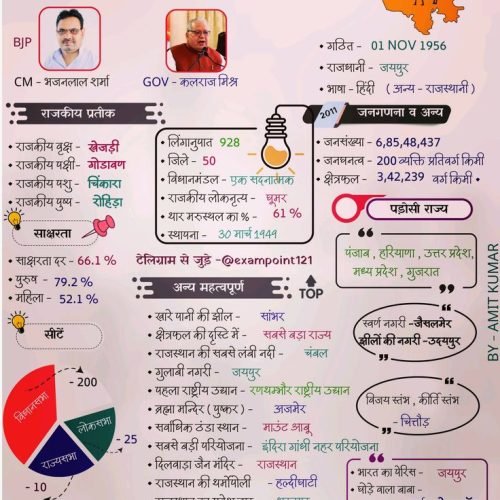 BJP
CM - भजनलाल शर्मा
GOV - कलराज मिश्र
• गठित - 01 NOV 1956
• राजधानी - जयपुर
• भाषा - हिंदी ( अन्य - राजस्थानी )
राजकीय प्रतीक
• राजकीय वृक्ष - खेजड़ी
• राजकीय पक्षी - गोडावण
• राजकीय पशु - चिंकारा
• राजकीय पुष्प - रोहिड़ा
• लिंगानुपात 928
• जिले - 50
• विधानमंडल - एक सदनात्मक
• राजकीय लोकनृत्य - घूमर
• थार मरुस्थल का % - 61 %
• स्थापना - 30 मार्च 1949
2011
जनगणना व अन्य
• जनसंख्या - 6,85,48,437
• जनघनत्व - 200 व्यक्ति प्रतिवर्ग किमी
• क्षेत्रफल - 3,42,239 वर्ग किमी •
साक्षरता
• साक्षरता दर - 66.1 %
• पुरुष - 79.2 %
• महिला - 52.1 %
टेलिग्राम से जुड़े -@exampoint121
पड़ोसी राज्य
पंजाब , हरियाणा , उत्तर प्रदेश,
मध्य प्रदेश , गुजरात
सीटें
- 200
विधानसभा
लोकसभा
- 25
राज्यसभा
- 10
अन्य महत्वपूर्ण
TOP
• खारे पानी की झील - सांभर
• क्षेत्रफल की दृस्टि में - सबसे बड़ा राज्य
• राजस्थान की सबसे लंबी नदी - चंबल
• गुलाबी नगरी - जयपुर
• पहला राष्ट्रीय उद्यान - रणथम्भौर राष्ट्रीय उद्यान
• ब्रह्मा मन्दिर ( पुष्कर ) - अजमेर
• सर्वाधिक ठंडा स्थान - माउंट आबू
• सबसे बड़ी परियोजना - इंदिरा गांधी नहर परियोजना
• दिलवाड़ा जैन मंदिर - राजस्थान
• राजस्थान की थर्मोपॉली - हल्दीघाटी
स्वर्ण नगरी -जैसलमेर
झीलों की नगरी -उदयपुर
विजय स्तंभ , कीर्ति स्तंभ
- चित्तौड़
• भारत का पेरिस - जयपुर
• घोड़े वाला बाबा -
BY - AMIT KUMAR